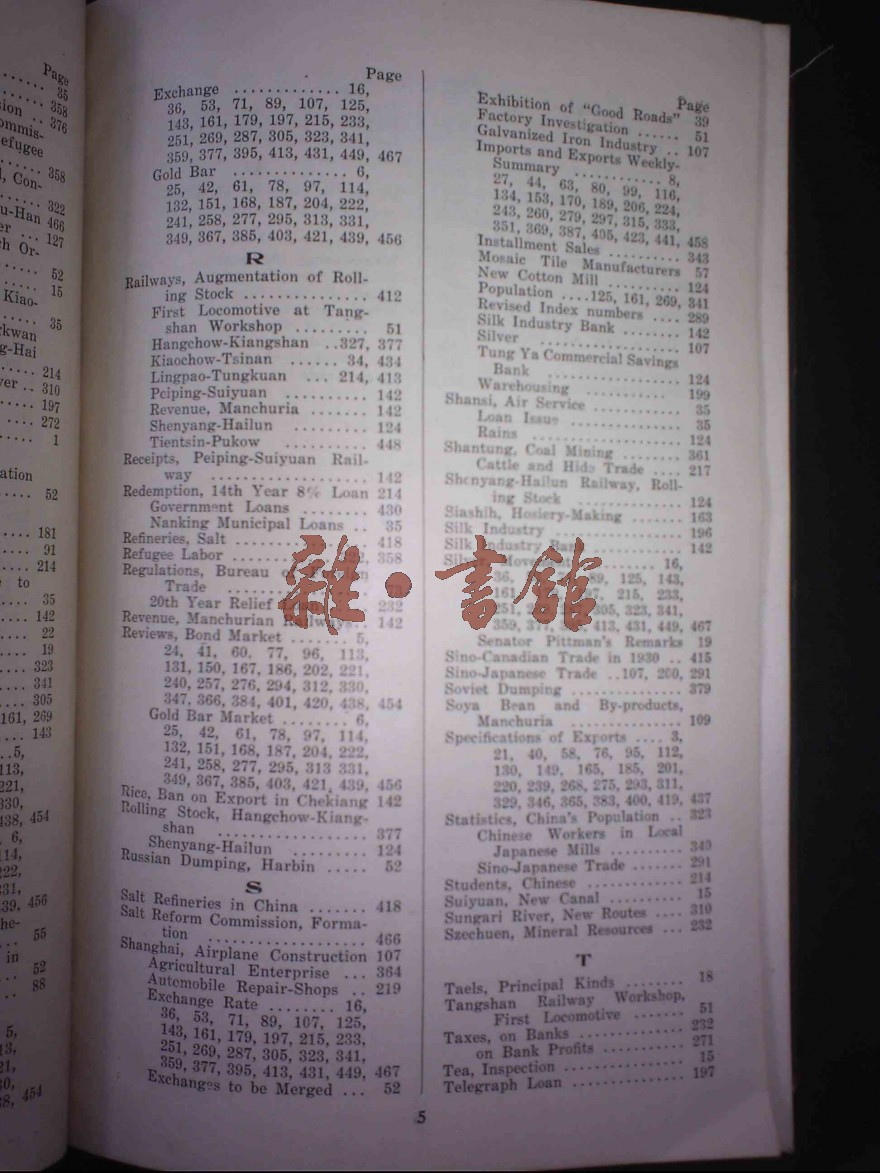 Page
35
358
376
358
322
466
127
52
15
35
214
310
197
272
1
52
181
91
214
35
142
22
19
323
341
305
161, 269
143
Page
Exchange ............. 16,
36, 53, 71, 89, 107, 125,
143, 161, 179, 197, 215, 233,
251, 269, 287, 305, 323, 341,
359, 377, 395, 413, 431, 449, 467
Gold Bar .............. 6,
25, 42, 61, 78, 97, 114,
132, 151, 168, 187, 204, 222,
241, 258, 277, 295, 313, 331,
349, 367, 385, 403, 421, 439, 456
R
Railways, Augmentation of Roll-
ing Stock ............... 412
First Locomotive at Tang-
shan Workshop ......... 51
Hangchow-Kiangshan ..327, 377
Kiaochow-Tsinan ...... 34, 434
Lingpao-Tungkuan ... 214, 413
Peiping-Suiyuan .......... 142
Revenue, Manchuria ....... 142
Shenyang-Hailun .......... 124
Tientsin-Pukow .......... 448
Receipts, Peiping-Suiyuan Rail-
way ................... 142
Redemption, 14th Year 8% Loan 214
Government Loans ........ 430
Nanking Municipal Loans .. 35
Refineries, Salt ................ 418
Refugee Labor ............ 358
Regulations, Bureau
Trade
20th Year Relief 232
Revenue, Manchurian Railways.. 142
Reviews, Bond Market ....... 5,
24, 41, 60, 77, 96, 113,
131, 150, 167, 186, 202, 221,
240, 257, 276, 294, 312, 330,
347, 366, 384, 401, 420, 438, 454
Gold Bar Market ........ 6,
25, 42, 61, 78, 97, 114,
132, 151, 168, 187, 204, 222,
241, 258, 277, 295, 313 331,
349, 367, 385, 403, 421, 439, 456
Rice, Ban on Export in Chekiang 142
Rolling Stock, Hangchow-Kiang-
shan .................. 377
Shenyang-Hailun ......... 124
Russian Dumping, Harbin ..... 52
S
Salt Refineries in China ....... 418
Salt Reform Commission, Forma-
tion ................... 466
Shanghai, Airplane Construction 107
Agricultural Enterprise ... 364
Automobile Repair-Shops .. 219
Exchange Rate ........ 16,
36, 53, 71, 89, 107, 125,
143, 161, 179, 197, 215, 233,
251, 269, 287, 305, 323, 341,
359, 377, 395, 413, 431, 449, 467
Exchanges to be Merged ... 52
Page
Exhibition of "Good Roads" 39
Factory Investigation ...... 51
Galvanized Iron Industry .. 107
Imports and Exports Weekly-
Summary ........... 8,
27, 44, 63, 80, 99, 116,
134, 153, 170, 189, 206, 224,
243, 260, 279, 297, 315, 333,
351, 369, 387, 405, 423, 441, 458
Installment Sales .......... 343
Mosaic Tile Manufacturers 57
New Cotton Mill ........... 124
Population ....125, 161, 269, 341
Revised Index numbers .... 289
Silk Industry Bank ........ 142
Silver .................. 107
Tung Ya Commercial Savings
Bank ................. 124
Warehousing ............ 199
Shansi, Air Service ............. 35
Loan Issue ............... 35
Rains ................... 124
Shantung, Coal Mining ........ 361
Cattle and Hide Trade .... 217
Shenyang-Hailun Railway, Roll-
ing Stock .............. 124
Siashih, Hosiery-Making ....... 163
Silk Industry ................ 196
Silk Industry Bank 142
16,
36, 89, 125, 143,
161 197, 215, 233,
251, 305, 323, 341,
359, 377, 413, 431, 449, 467
Senator Pittman's Remarks 19
Sino-Canadian Trade in 1930 .. 415
Sino-Japanese Trade ..107, 200, 291
Soviet Dumping .............. 379
Soya Bean and By-products,
Manchuria .............. 109
Specifications of Exports .... 3,
21, 40, 58, 76, 95, 112,
130, 149, 165, 185, 201,
220, 239, 268, 275, 293, 311,
329, 346, 365, 383, 400, 419, 437
Statistics, China's Population .. 323
Chinese Workers in Local
Japanese Mills .......... 340
Sino-Japanese Trade ....... 291
Students, Chinese ............ 214
Suiyuan, New Canal .......... 15
Sungari River, New Routes .... 310
Szechuen, Mineral Resources ... 232
T
Taels, Principal Kinds ........ 18
Tangshan Railway Workshop,
First Locomotive ....... 51
Taxes, on Banks .............. 232
on Bank Profits .......... 271
Tea, Inspection ............... 15
Telegraph Loan .............. 197
5
雜·書館